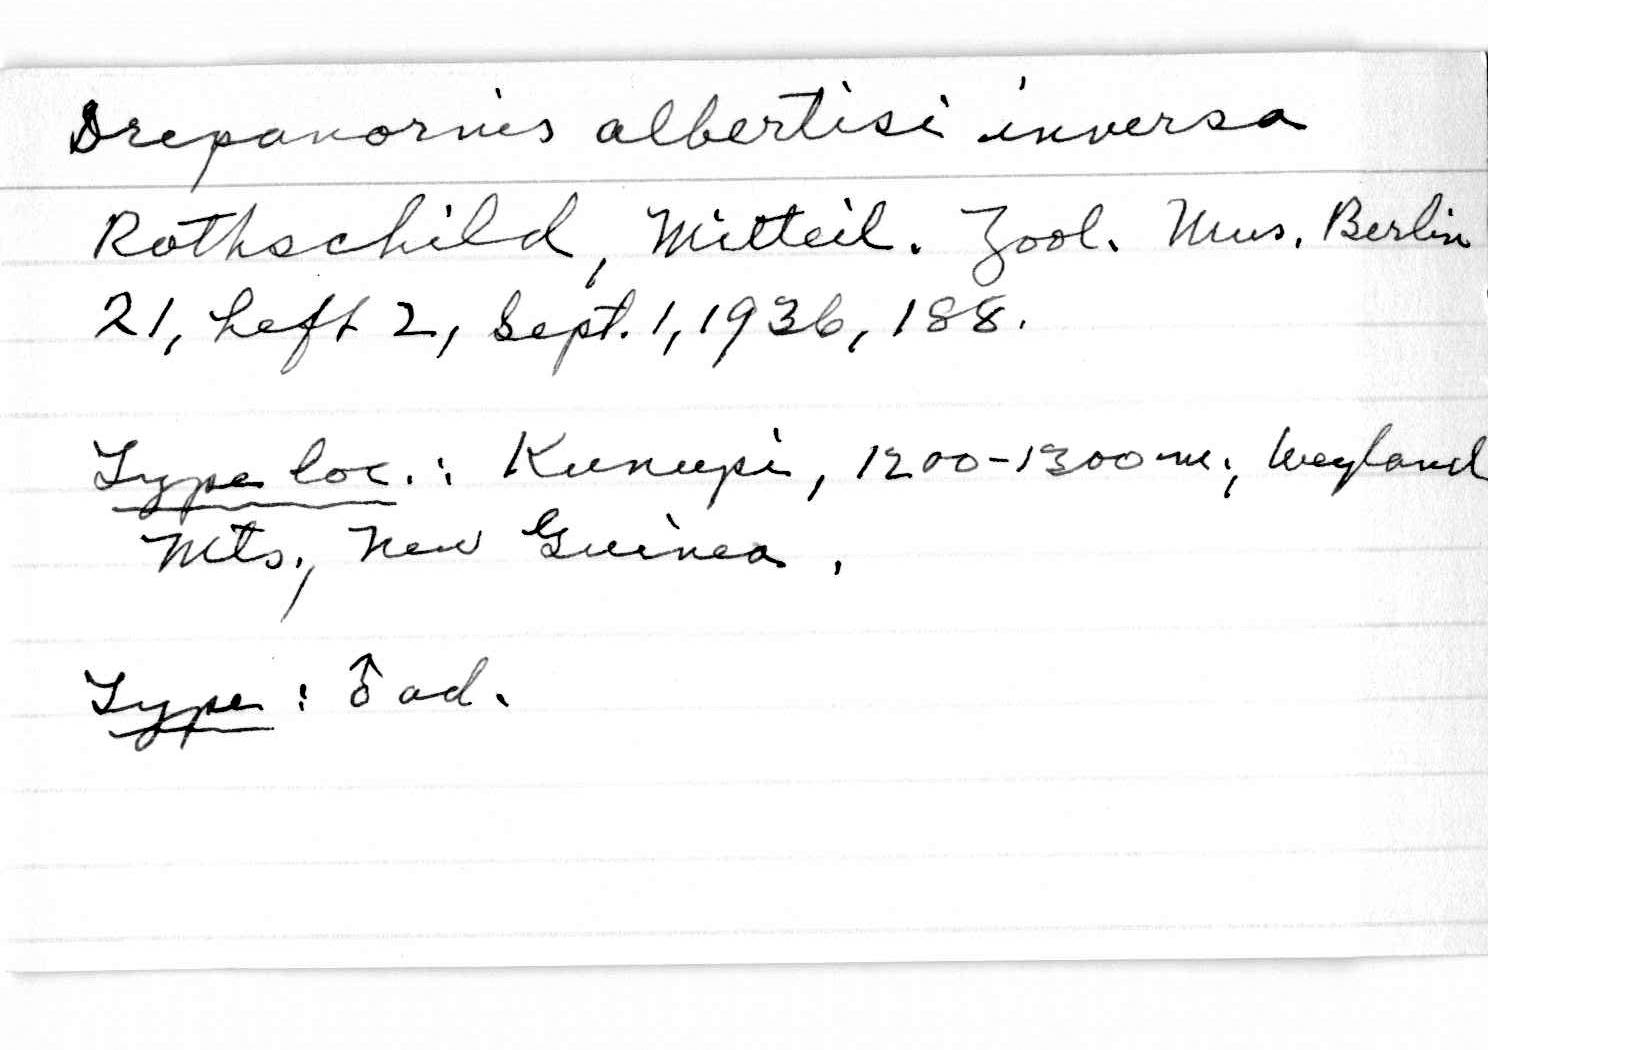 Drepanornis albertisi inversa
Rothschild, Mitteil. Zool. Mus. Berlin
21, heft 2, Sept. 1, 1936, 188.
Type loc.: Kunupi, 1200-1300 m., Weyland
Mts., New Guinea.
Type: ♂ ad.